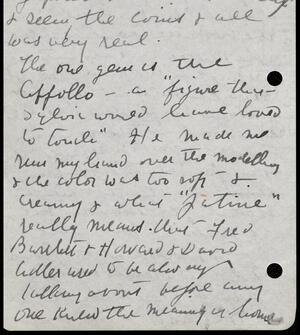 & seem the coins & all
was very real.
The one gem is the
Apollo – a "figure this
Sylvia would have loved
to touch" He made me
run my hand over the modelling
& the color was too soft &
creamy & what "Patine"
really means. that Fred
Bartlett & Howard & David
Adler used to be always
talking about before any
one knew the meaning of